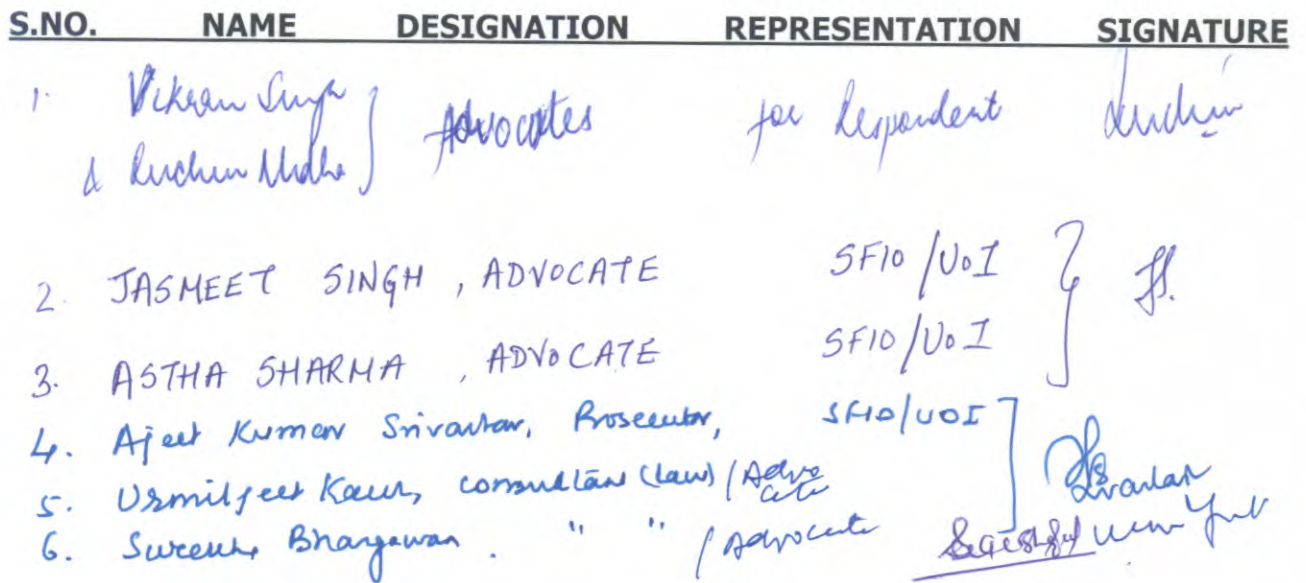 S.NO. NAME DESIGNATION REPRESENTATION SIGNATURE
1. Vikram Singh Advocates for Respondent
& Ruchin Midha
2. JASMEET SINGH, ADVOCATE SFIO/UOI
3. ASTHA SHARMA, ADVOCATE SFIO/UOI
4. Ajeet Kumar Srivastav, Prosecutor, SFIO/UOI
5. Urmiljeet Kaur, consultant (Law) / Advocate
6. Suresh Bhargawan. " " / Advocate